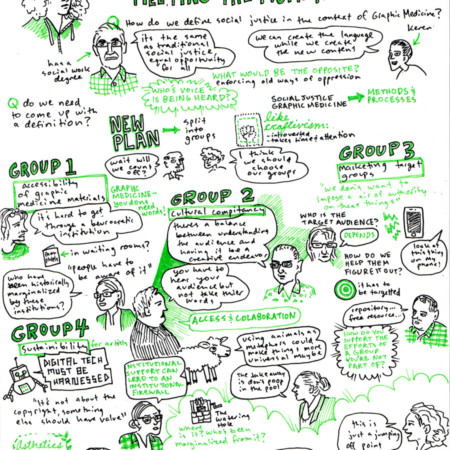 How do we define social justice in the context of Graphic Medicine?
its the same
as traditional
social justice,
equal opportunity
for all
we can create the language
while we create
the new content
Keren
has a
social work
degree
WHAT WOULD BE THE OPPOSITE?
enforcing old ways or oppression
WHO'S VOICE
IS BEING HEARD?
SOCIAL JUSTICE
GRAPHIC MEDICINE
METHODS &
PROCESSES
Q do we need
to come up with
a definition?
NEW
PLAN
split
into
groups
like
craftivism:
-introverted
-takes time & attention
wait will
we count
off?
I think
we should
choose
our groups
GROUP 1
accessibility
of graphic
medicine materials
GRAPHIC
MEDICINE-
you dont
need
words!
it's hard to get
through a beurocratic
institution
in waiting rooms?
"people have to
be aware of it"
who have
been historically
marginalized
by these
institutions?
GROUP 2
cultural competancy
there's a balance
between understanding
the audience and
having it be a
creative endeavor
you have to
hear your
audience but
not take their
word
ACCESS & COLABORATION
GROUP 3
marketing target
groups
"We don't want to
WHO IS THE
TARGET AUDIENCE?
DEPENDS
HOW DO WE
HELP THEM
FIGURE IT OUT?
look at this
thing on
my phone!
it has to
be targetted
repository...
free resource...
HOW DO YOU
SUPPORT THE
EFFORTS OF
A GROUP
YOU'RE NOT
PART OF?
GROUP 4
sustainibility for artists
DIGITAL TECH
MUST BE
HARNESSED
"It's not about the
copyright, something
else should have value!"
INSTITUTIONAL
SUPPORT CAN
LEAD TO AN
INSTITUTIONAL
FIREWALL
using animals as
metaphors could
make things more
universal maybe
The takeaway
is don't poop
in the pool
The Watering
Hole
where
is it? who's been
marginalized from it?
aesthetics
this is
just a
jumping off
point